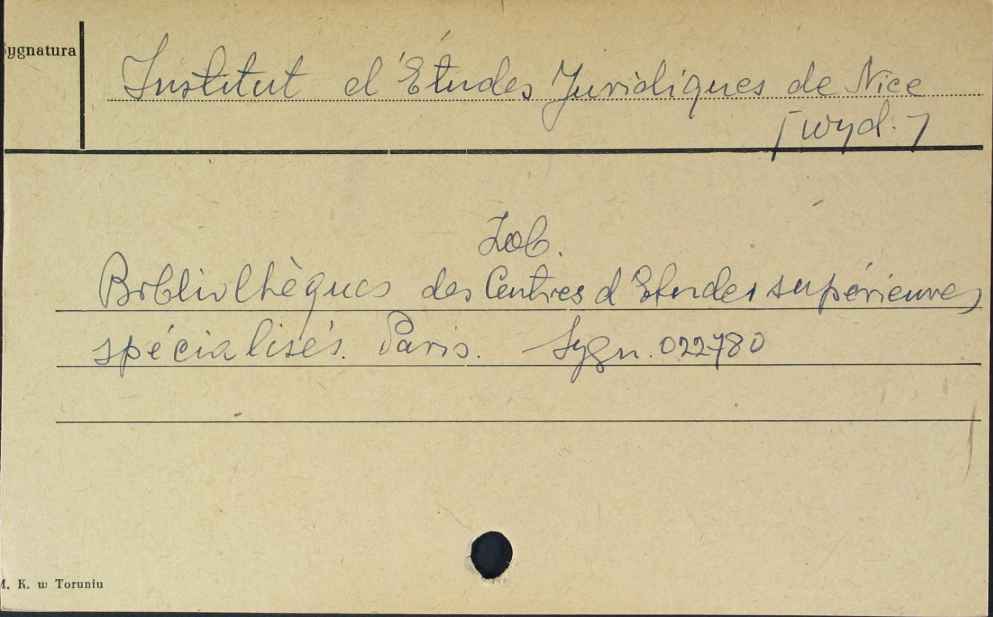 Sygnatura
Institut d'Études Juridiques de Nice
[wyd.]
Zob.
Bibliothèques des Centres d'Etudes supérieures
spécialisés. Paris. Sygn. 022780
M. K. w Toruniu